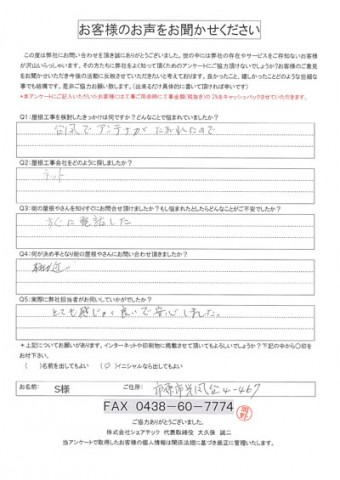 お客様のお声をお聞かせください
この度は弊社にお問い合わせを頂き誠にありがとうございました。世の中には弊社の存在やサービスをご存知ないお客様
が沢山いらっしゃいます。その方たちに弊社をよく知って頂くためのアンケートにご協力頂けないでしょうか?お客様のご意見
をお聞かせいただき今後の活動に反映させていただきたいと考えております。良かったこと、嬉しかったことどのような些細な
事でも結構です。是非ご協力お願い致します。(出来るだけ具体的に書いて頂ければ幸いです)
*本アンケートにご記入いただいたお客様には工事ご用命時にて工事金額(税抜き)の2%をキャッシュバックさせていただきます。
Q1:屋根工事を検討したきっかけは何ですか?どんなことで悩まれていましたか?
台風でアンテナがたおれたので
Q2:屋根工事会社をどのように探しましたか?
ネット
Q3:街の屋根やさんを知りすぐにお問合せ頂けましたか?もし悩まれたとしたらどんなことがご不安でしたか?
すぐに電話した
Q4:何が決め手となり街の屋根やさんにお問い合わせ頂きましたか?
Q5:実際に弊社担当者がお伺いしていかがでしたか?
とても感じが良いで安心しました。
*上記についてお願いがあります。インターネットや印刷物に掲載させて頂いてもよろしいでしょうか?下記の中から〇印を
お付下さい。
( )名前を出してもよい (○)イニシャルなら出してもよい
お名前: S様 ご住所: 市原市光風台4-467
FAX 0438-60-7774
ご協力ありがとうございました。
株式会社シェアテック 代表取締役 大久保 誠二
当アンケートで取得したお客様の個人情報は関係法規に基づき厳正に管理いたします。